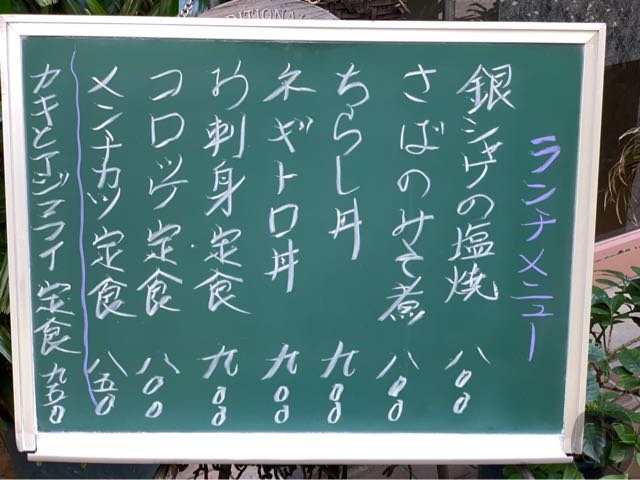 DITIONAL
ランチメニュー
銀シャケの塩焼 八〇〇
さばのみそ煮 八〇〇
ちらし丼 九〇〇
ネギトロ丼 九〇〇
お刺身定食 九〇〇
コロッケ定食 八〇〇
メンチカツ定食 八五〇
カキとアジフライ定食 九五〇